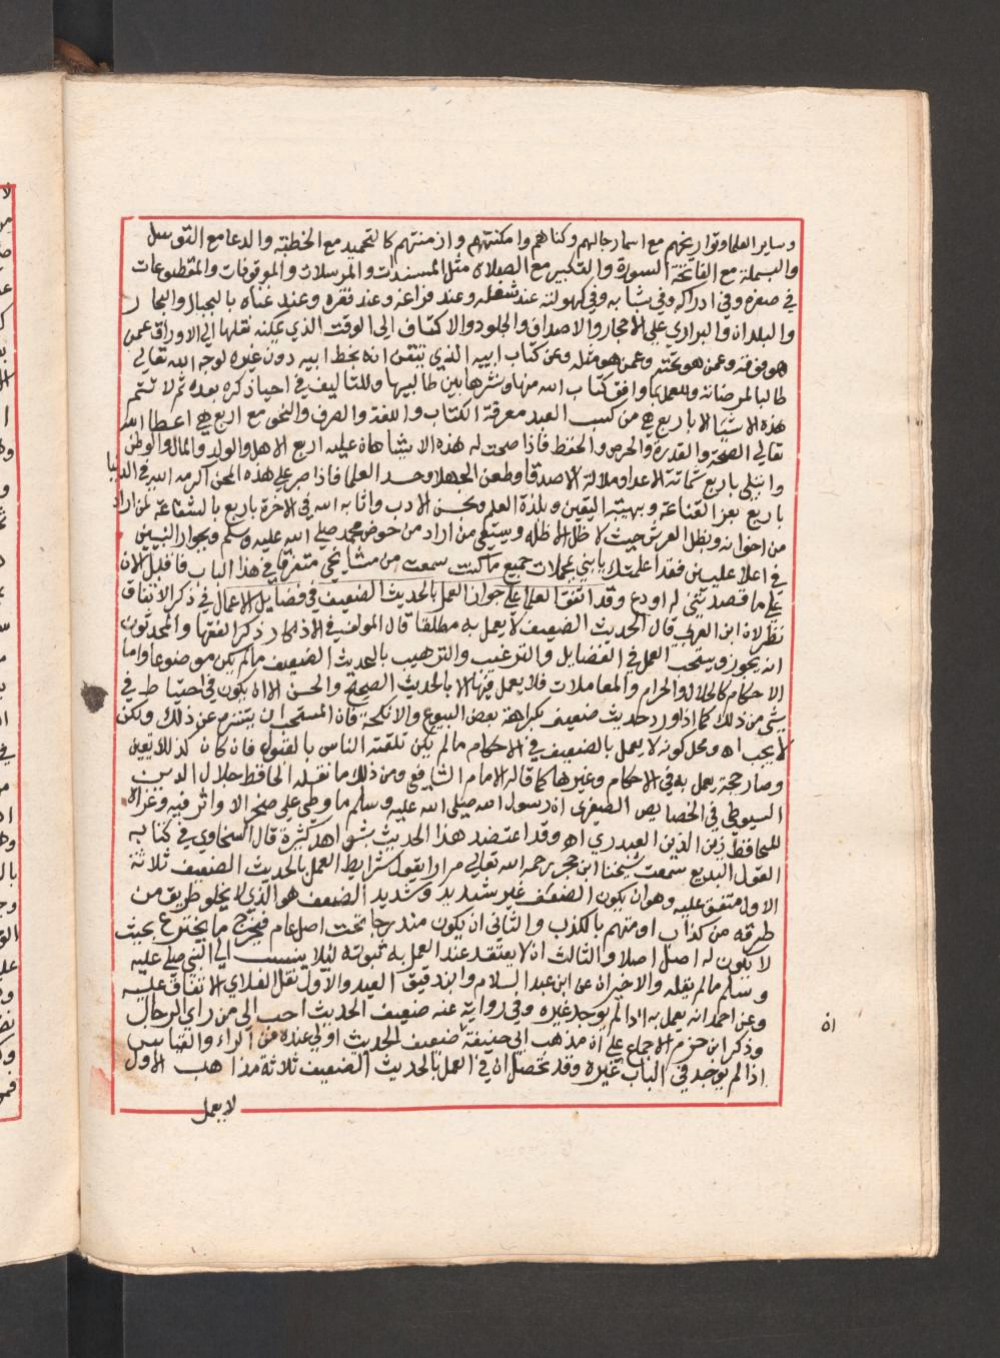 وساير العلما وتواريخهم مع اسما رجالهم وكناهم وامكنتهم وازمنتهم كالتحميد مع الخطبة والدعا مع التوسل
والبسملة مع الفاتحة السورة والتكبير مع الصلاة مثل المسندات والمرسلات والموقوفات والمقطوعات
في صغره وفي ادراكه وفي شبابه وفي كهولته عند شغله وعند فراغه وعند فقره وعند غناه بالجبال والبحار
والبلدان والبراري على الاحجار والاصداف والجلود والاكتاف الى الوقت الذي يمكنه نقلها الى الاوراق عمن
هو فوقه وعمن هو تحته وعمن هو مثله وعن كتاب ابيه الذي يتيقن انه بخط ابيه دون غيره لوجه الله تعالى
طالبا لمرضاته وللعمل بما وافق كتاب الله منها ونشرها بين طالبيها وللتاليف في احيا ذكره بعده ثم لا تتم
هذه الاشيا الا باربع هي من كسب العبد معرفة الكتاب واللغة والصرف والنحو مع اربع هي اعطا الله
تعالى الصحة والقدرة والحرص والحفظ فاذا صحت له هذه الاشيا هان عليه اربع الاهل والولد والمال والوطن
وابتلي باربع شماتة الاعدا وملالة الاصدقا وطعن الجهلا وحسد العلما فاذا صبر على هذه المحن اكرمه الله في الدنيا
باربع بعز القناعة وبهيبة اليقين وبلذة العلم وبحسن الادب واثابه الله في الاخرة باربع بالشفاعة لمن اراد
من اخوانه وبظل العرش حيث لا ظل الا ظله ويسقي من اراد من حوض محمد صلى الله عليه وسلم وبجوار النبيين
في اعلا عليين فقد اعلمتك يابني بمجملات جميع ما كنت سمعت من مشايخي متفرقا في هذا الباب فاقبل الان
على ما قصدتني له اودع وقد اتفق العلما على جواز العمل بالحديث الضعيف في فضايل الاعمال في ذكر الاتفاق
نظر لان ابن العربي قال الحديث الضعيف لا يعمل به مطلقا قال المولف في الاذكار ذكر الفقها والمحدثون
انه يجوز ويستحب العمل في الفضايل والترغيب والترهيب بالحديث الضعيف مالم يكن موضوعا واما
الاحكام كالحلال والحرام والمعاملات فلا يعمل فيها الا بالحديث الصحيح والحسن الا ان يكون في احتياط في
شي من ذلك كما اذا ورد حديث ضعيف بكراهة بعض البيوع والانكحة فان المستحب ان يتنزه عن ذلك ولكن
لا يجب اه ومحل كونه لا يعمل بالضعيف في الاحكام مالم يكن تلقته الناس بالقبول فان كان كذلك تعين
وصار حجة يعمل به في الاحكام وغيرها كما قاله الامام الشافعي ومن ذلك ما نقله الحافظ جلال الدين
السيوطي في الخصايص الصغرى ان رسول الله صلى الله عليه وسلم ما وطي على صخر الا واثر فيه وعزاه
للحافظ زين الدين العبدري اه وقد اعتضد هذا الحديث بشواهد كثيرة قال السخاوي في كتابه
القول البديع سمعت شيخنا ابن حجر رحمه الله تعالى مرارا يقول شرايط العمل بالحديث الضعيف ثلاثة
الاول متفق عليه وهو ان يكون الضعف غير شديد وشديد الضعف هو الذي لا يخلو طريق من
طرقه من كذاب او متهم بالكذب والثاني ان يكون مندرجا تحت اصل عام فيخرج ما يخترع بحيث
لا يكون له اصل اصلا والثالث ان لا يعتقد عند العمل به ثبوته ليلا ينسب الى النبي صلى عليه
وسلم مالم يقله والاخيران عن ابن عبد السلام وابن دقيق العيد والاول نقل العلاي الاتفاق عليه
وعن احمد انه يعمل به اذا لم يوجد غيره وفي رواية عنه ضعيف الحديث احب الي من راي الرجال
وذكر ابن حزم الاجماع على ان مذهب ابي حنيفة ضعيف الحديث اولى عنده من الراء والقياس
ان
اذا لم يوجد في الباب غيره وقد تحصل ان في العمل بالحديث الضعيف ثلاثة مذاهب الاول
لا يعمل